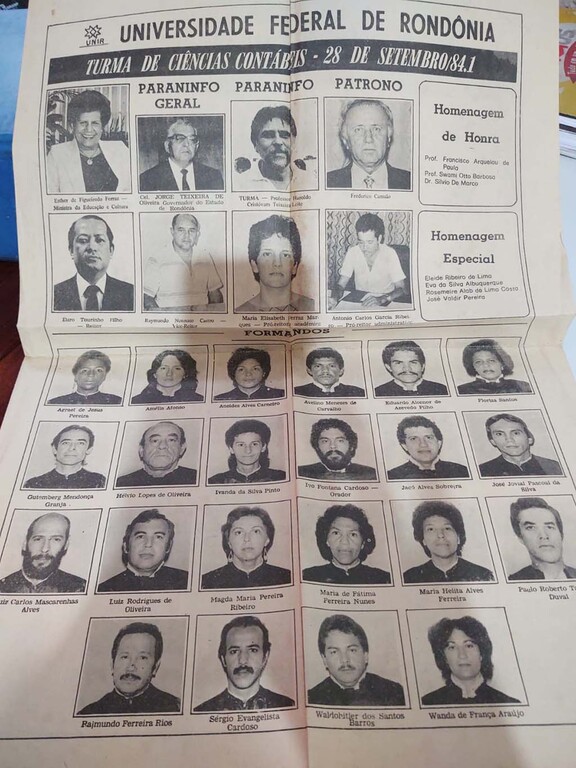 UNIR
UNIVERSIDADE FEDERAL DE RONDÔNIA
TURMA DE CIÊNCIAS CONTÁBEIS - 28 DE SETEMBRO/84.1
PARANINFO
GERAL
PARANINFO
PATRONO
Esther de Figueiredo Ferraz —
Ministra da Educação e Cultura
Cel. JORGE TEIXEIRA DE
Oliveira Governador do Estado
de Rondônia
TURMA — Professor
Cristóvam Teixeira
Homenagem
de Honra
Prof. Francisco Arquelau de
Paula
Prof. Swami Otto Barbosa
Dr. Silvio De Marco
Euro Tourinho Filho —
Reitor
Raymundo Nonato Castro —
Vice-Reitor
Maria Elizabeth
Antonio Carlos Garcia
Pró-reitor administrativo
Homenagem
Especial
Eleide Ribeiro de Lima
Eva da Silva Albuquerque
Rosemeire Alab de Lima Costa
José Valdir Pereira
FORMANDOS
de Jesus
Pereira
Amélia Afonso
Alves Carneiro
Avelino Menezes de
Carvalho
Eduardo
Azevedo Filho
Floriza Santos
Gutemberg Mendonça
Granja
Hélvio Lopes de Oliveira
Ivanda da Silva Pinto
Ivo Fontana Cardoso —
Orador
Jacó Alves Sobreira
José Jovial Pascoal da
Silva
Carlos Mascarenhas
Alves
Luiz Rodrigues de
Oliveira
Magda Maria Pereira
Ribeiro
Maria de Fátima
Ferreira Nunes
Maria Helita Alves
Ferreira
Paulo Roberto
Duval
Raimundo Ferreira Rios
Sérgio Evangelista
Cardoso
Waldohitler dos Santos
Barros
Wanda de França Araújo